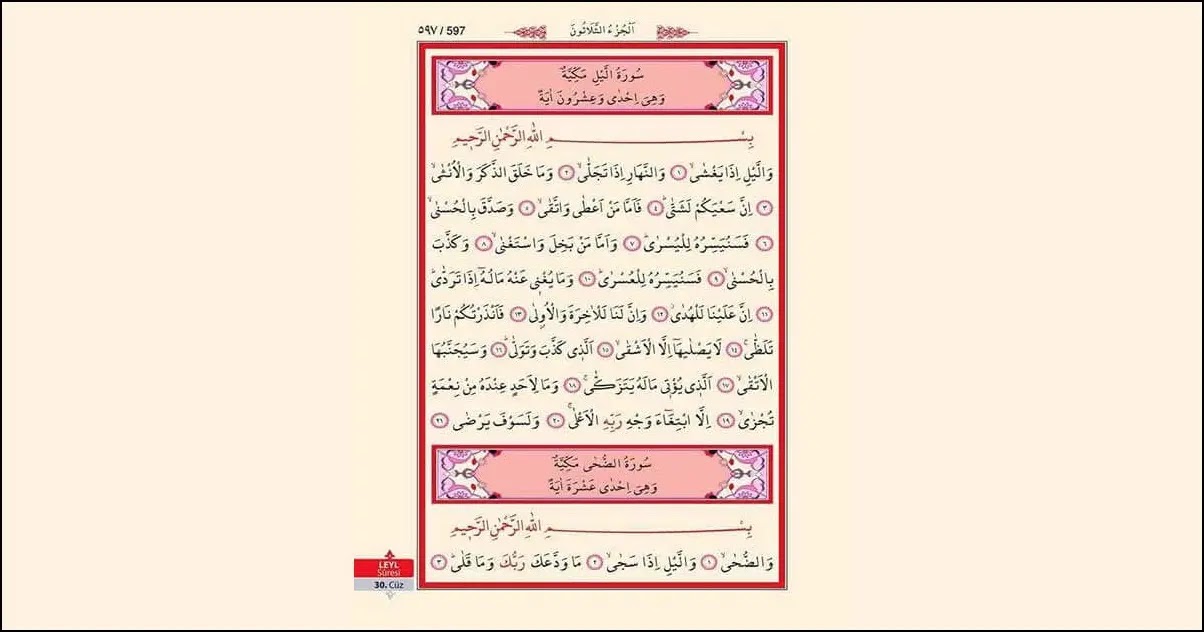 ٥٩٧ / 597
اَلْجُزْءُ الثَّلَاثُونَ
سُورَةُ الَّيْلِ مَكِّيَّةٌ
وَهِىَ اِحْدٰى وَعِشْرُونَ اٰيَةً
بِسْمِ اللّٰهِ الرَّحْمٰنِ الرَّحٖيمِ
وَالَّيْلِ اِذَا يَغْشٰىۙ ﴿١﴾ وَالنَّهَارِ اِذَا تَجَلّٰىۙ ﴿٢﴾ وَمَا خَلَقَ الذَّكَرَ وَالْاُنْثٰىۙ
﴿٣﴾ اِنَّ سَعْيَكُمْ لَشَتّٰىؕ ﴿٤﴾ فَاَمَّا مَنْ اَعْطٰى وَاتَّقٰىۙ ﴿٥﴾ وَصَدَّقَ بِالْحُسْنٰىۙ
﴿٦﴾ فَسَنُيَسِّرُهُ لِلْيُسْرٰىؕ ﴿٧﴾ وَاَمَّا مَنْ بَخِلَ وَاسْتَغْنٰىۙ ﴿٨﴾ وَكَذَّبَ
بِالْحُسْنٰىۙ ﴿٩﴾ فَسَنُيَسِّرُهُ لِلْعُسْرٰىؕ ﴿١٠﴾ وَمَا يُغْنٖى عَنْهُ مَالُهُٓ اِذَا تَرَدّٰىؕ
﴿١١﴾ اِنَّ عَلَيْنَا لَلْهُدٰىؗ ﴿١٢﴾ وَاِنَّ لَنَا لَلْاٰخِرَةَ وَالْاُو۫لٰى ﴿١٣﴾ فَاَنْذَرْتُكُمْ نَارًا
تَلَظّٰىۚ ﴿١٤﴾ لَا يَصْلٰيهَٓا اِلَّا الْاَشْقٰىۙ ﴿١٥﴾ اَلَّذٖى كَذَّبَ وَتَوَلّٰىؕ ﴿١٦﴾ وَسَيُجَنَّبُهَا
الْاَتْقٰىۙ ﴿١٧﴾ اَلَّذٖى يُؤْتٖى مَالَهُ يَتَزَكّٰىۚ ﴿١٨﴾ وَمَا لِاَحَدٍ عِنْدَهُ مِنْ نِعْمَةٍ
تُجْزٰىۙ ﴿١٩﴾ اِلَّا ابْتِغَٓاءَ وَجْهِ رَبِّهِ الْاَعْلٰىۚ ﴿٢٠﴾ وَلَسَوْفَ يَرْضٰى ﴿٢١﴾
سُورَةُ الضُّحٰى مَكِّيَّةٌ
وَهِىَ اِحْدٰى عَشْرَةَ اٰيَةً
بِسْمِ اللّٰهِ الرَّحْمٰنِ الرَّحٖيمِ
وَالضُّحٰىۙ ﴿١﴾ وَالَّيْلِ اِذَا سَجٰىۙ ﴿٢﴾ مَا وَدَّعَكَ رَبُّكَ وَمَا قَلٰىؕ ﴿٣﴾
LEYL
Sûresi
30. Cüz